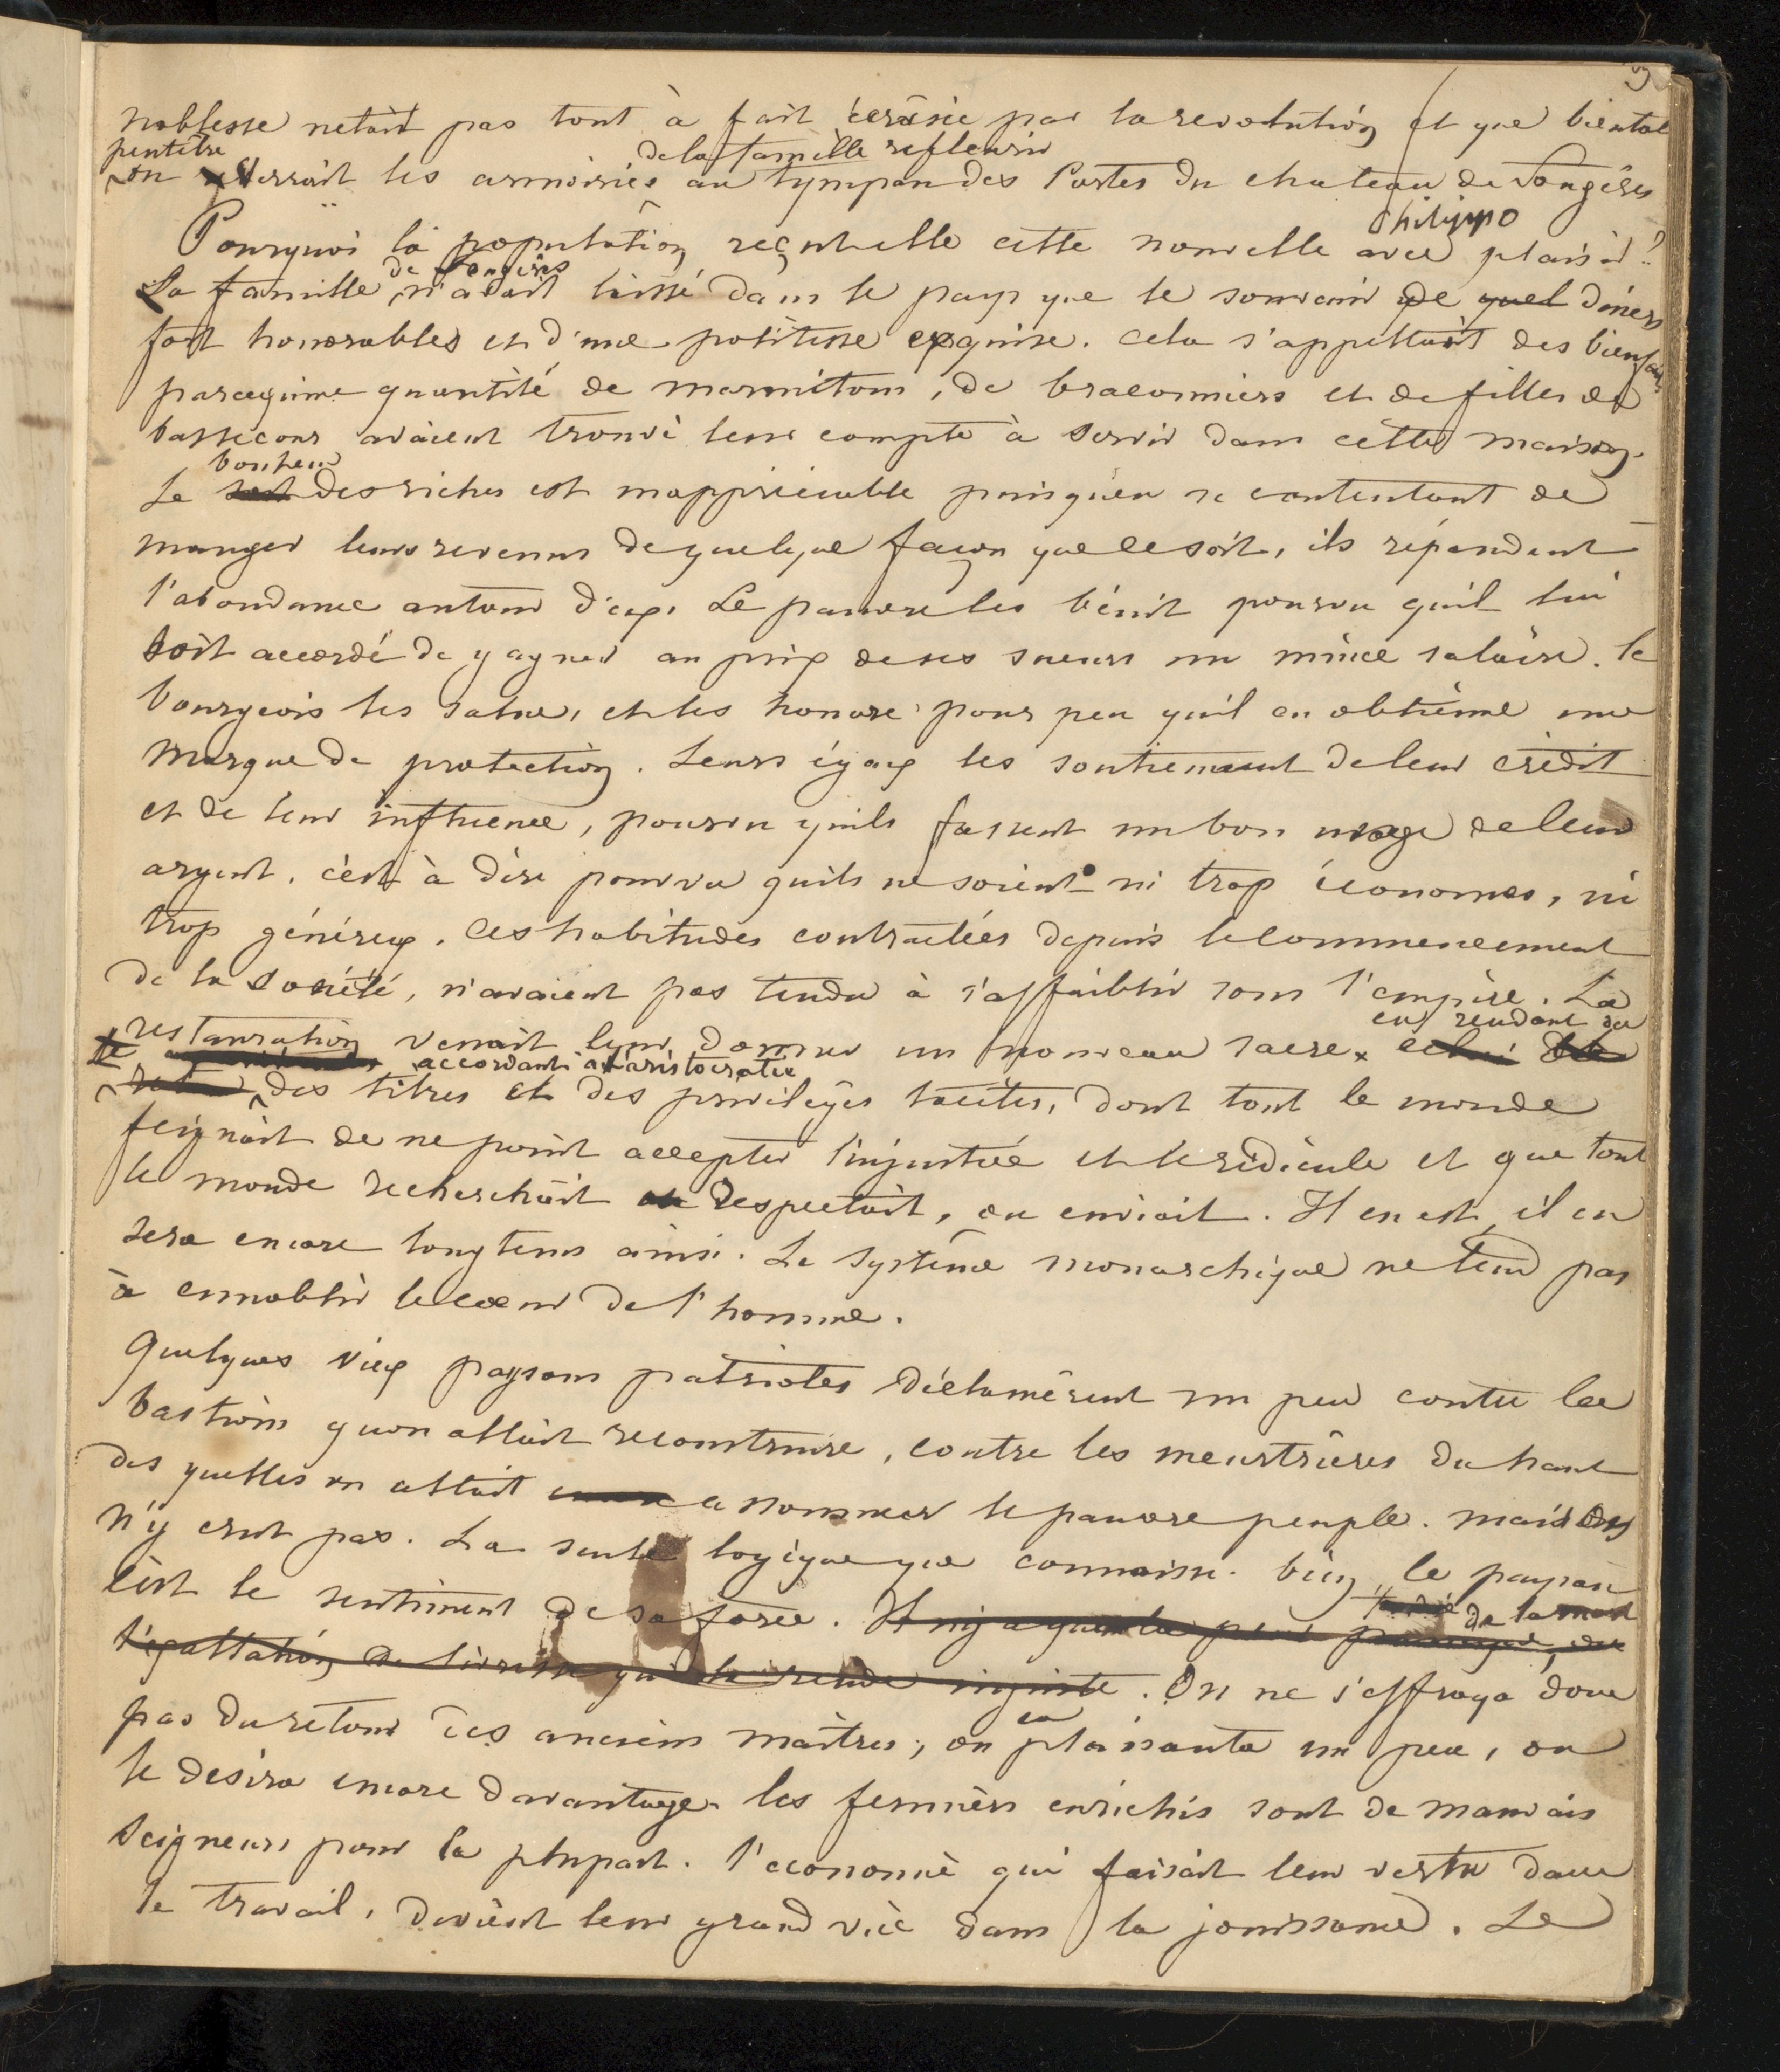 noblesse netait pas tout à fait écrasée par la revolution et que bientot
peutetre de la famille refleurir
on verrait les armoiries au tympan des Portes du chateau de Songères
Philippe
Pourquoi la population reçut elle cette nouvelle avec plaisir?
de Songères
La famille n'avait laissé dans le pays que le souvenir de quel diners
fort honorables et d'une politesse exquise. Cela s'appellait des bienfaits
parcequ'une quantité de marmitons, de braconniers et de filles de
bassecour avaient trouvé leur compte à servir dans cette maison.
bonheur
Le sort des riches est inappréciable puisqu'en se contentant de
manger leurs revenus de quelque façon que ce soit, ils répandent
l'abondance autour d'eux. Le pauvre les bénit pourvu qu'il lui
soit accordé de gagner au prix de ses sueurs un mince salaire. le
bourgeois les salue, et les honore pour peu qu'il en obtienne une
marque de protection. Leurs égaux les soutiennent de leur crédit
et de leur influence, pourvu qu'ils fassent un bon usage de leur
argent. c'est à dire pourvu qu'ils ne soient ni trop économes, ni
trop généreux. Ces habitudes contractées depuis le commencement
de la société, n'avaient pas tendu à s'affaiblir sous l'empire. La
en rendant ou
restauration venait leur donner un nouveau sacre celui de
accordant à l'aristocratie
des titres et des privilèges tacites, dont tout le monde
feignait de ne point accepter l'injustice et le ridicule et que tout
le monde recherchait respectait, ou enviait. Il en est, il en
sera encore longtems ainsi. Le système monarchique ne tend pas
à ennoblir le cœur de l'homme.
Quelques vieux paysans patriotes déclamèrent un peu contre les
bastions qu'on allait reconstruire, contre les meurtrières du haut
des quelles on allait assommer le pauvre peuple. mais on
n'y crut pas. La seule logique que connaisse bien, le paysan
c'est le sentiment de sa force. Il n'y a que la peur
de la mort
l'exaltation de l'ivresse qui le rende injuste. On ne s'effraya donc
en
pas du retour des anciens maîtres, on plaisanta un peu, on
le desira encore davantage. les fermiers enrichis sont de mauvais
seigneurs pour la plupart. l'economie qui faisait leur vertu dans
le travail, devient leur grand vice dans la jouissance. Le